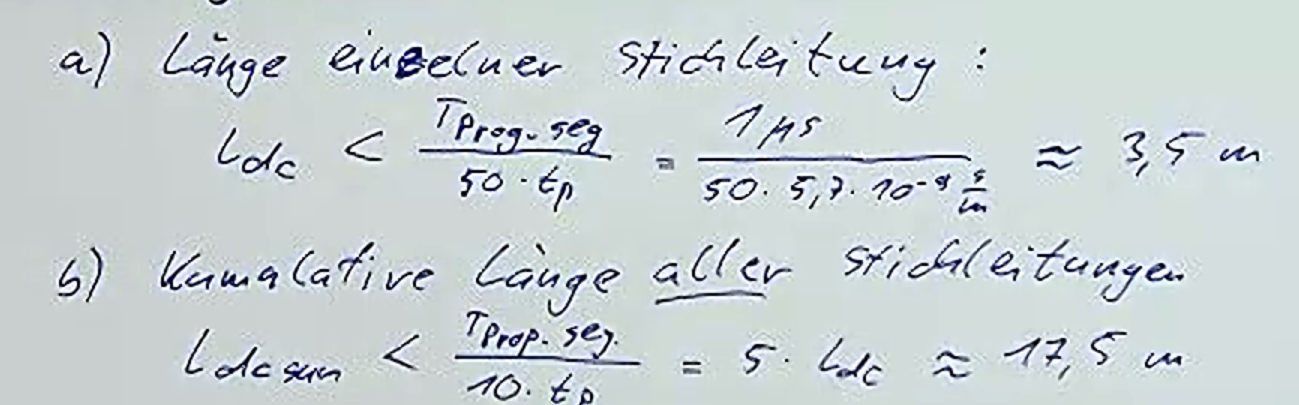 a) Länge einzelner Stichleitung :
Ldc < TProg. seg / 50 · tp = 1 µs / 50 · 5,7 · 10⁻⁹ s/m ≈ 3,5 m
b) Kumalative Länge aller Stichleitungen
Ldcsum < TProp. seg. / 10 · tp = 5 · Ldc ≈ 17,5 m